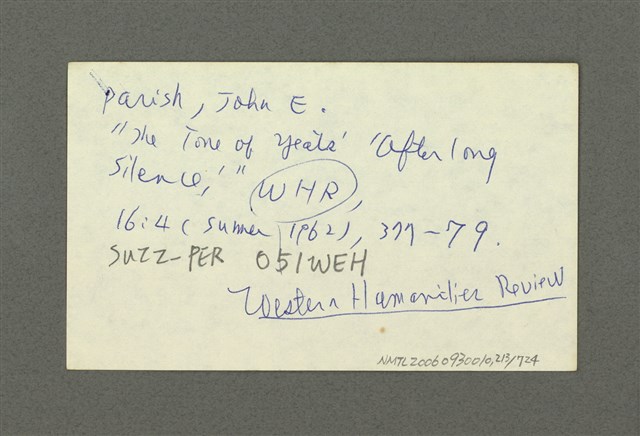 Parish, John E.
"The Tone of Yeats' 'After long
Silence,'" WHR,
16:4 (Summer 1962), 377-79.
SUZZ-PER 051WEH
Western Hamanities Review
NMTL20060930010,213/724